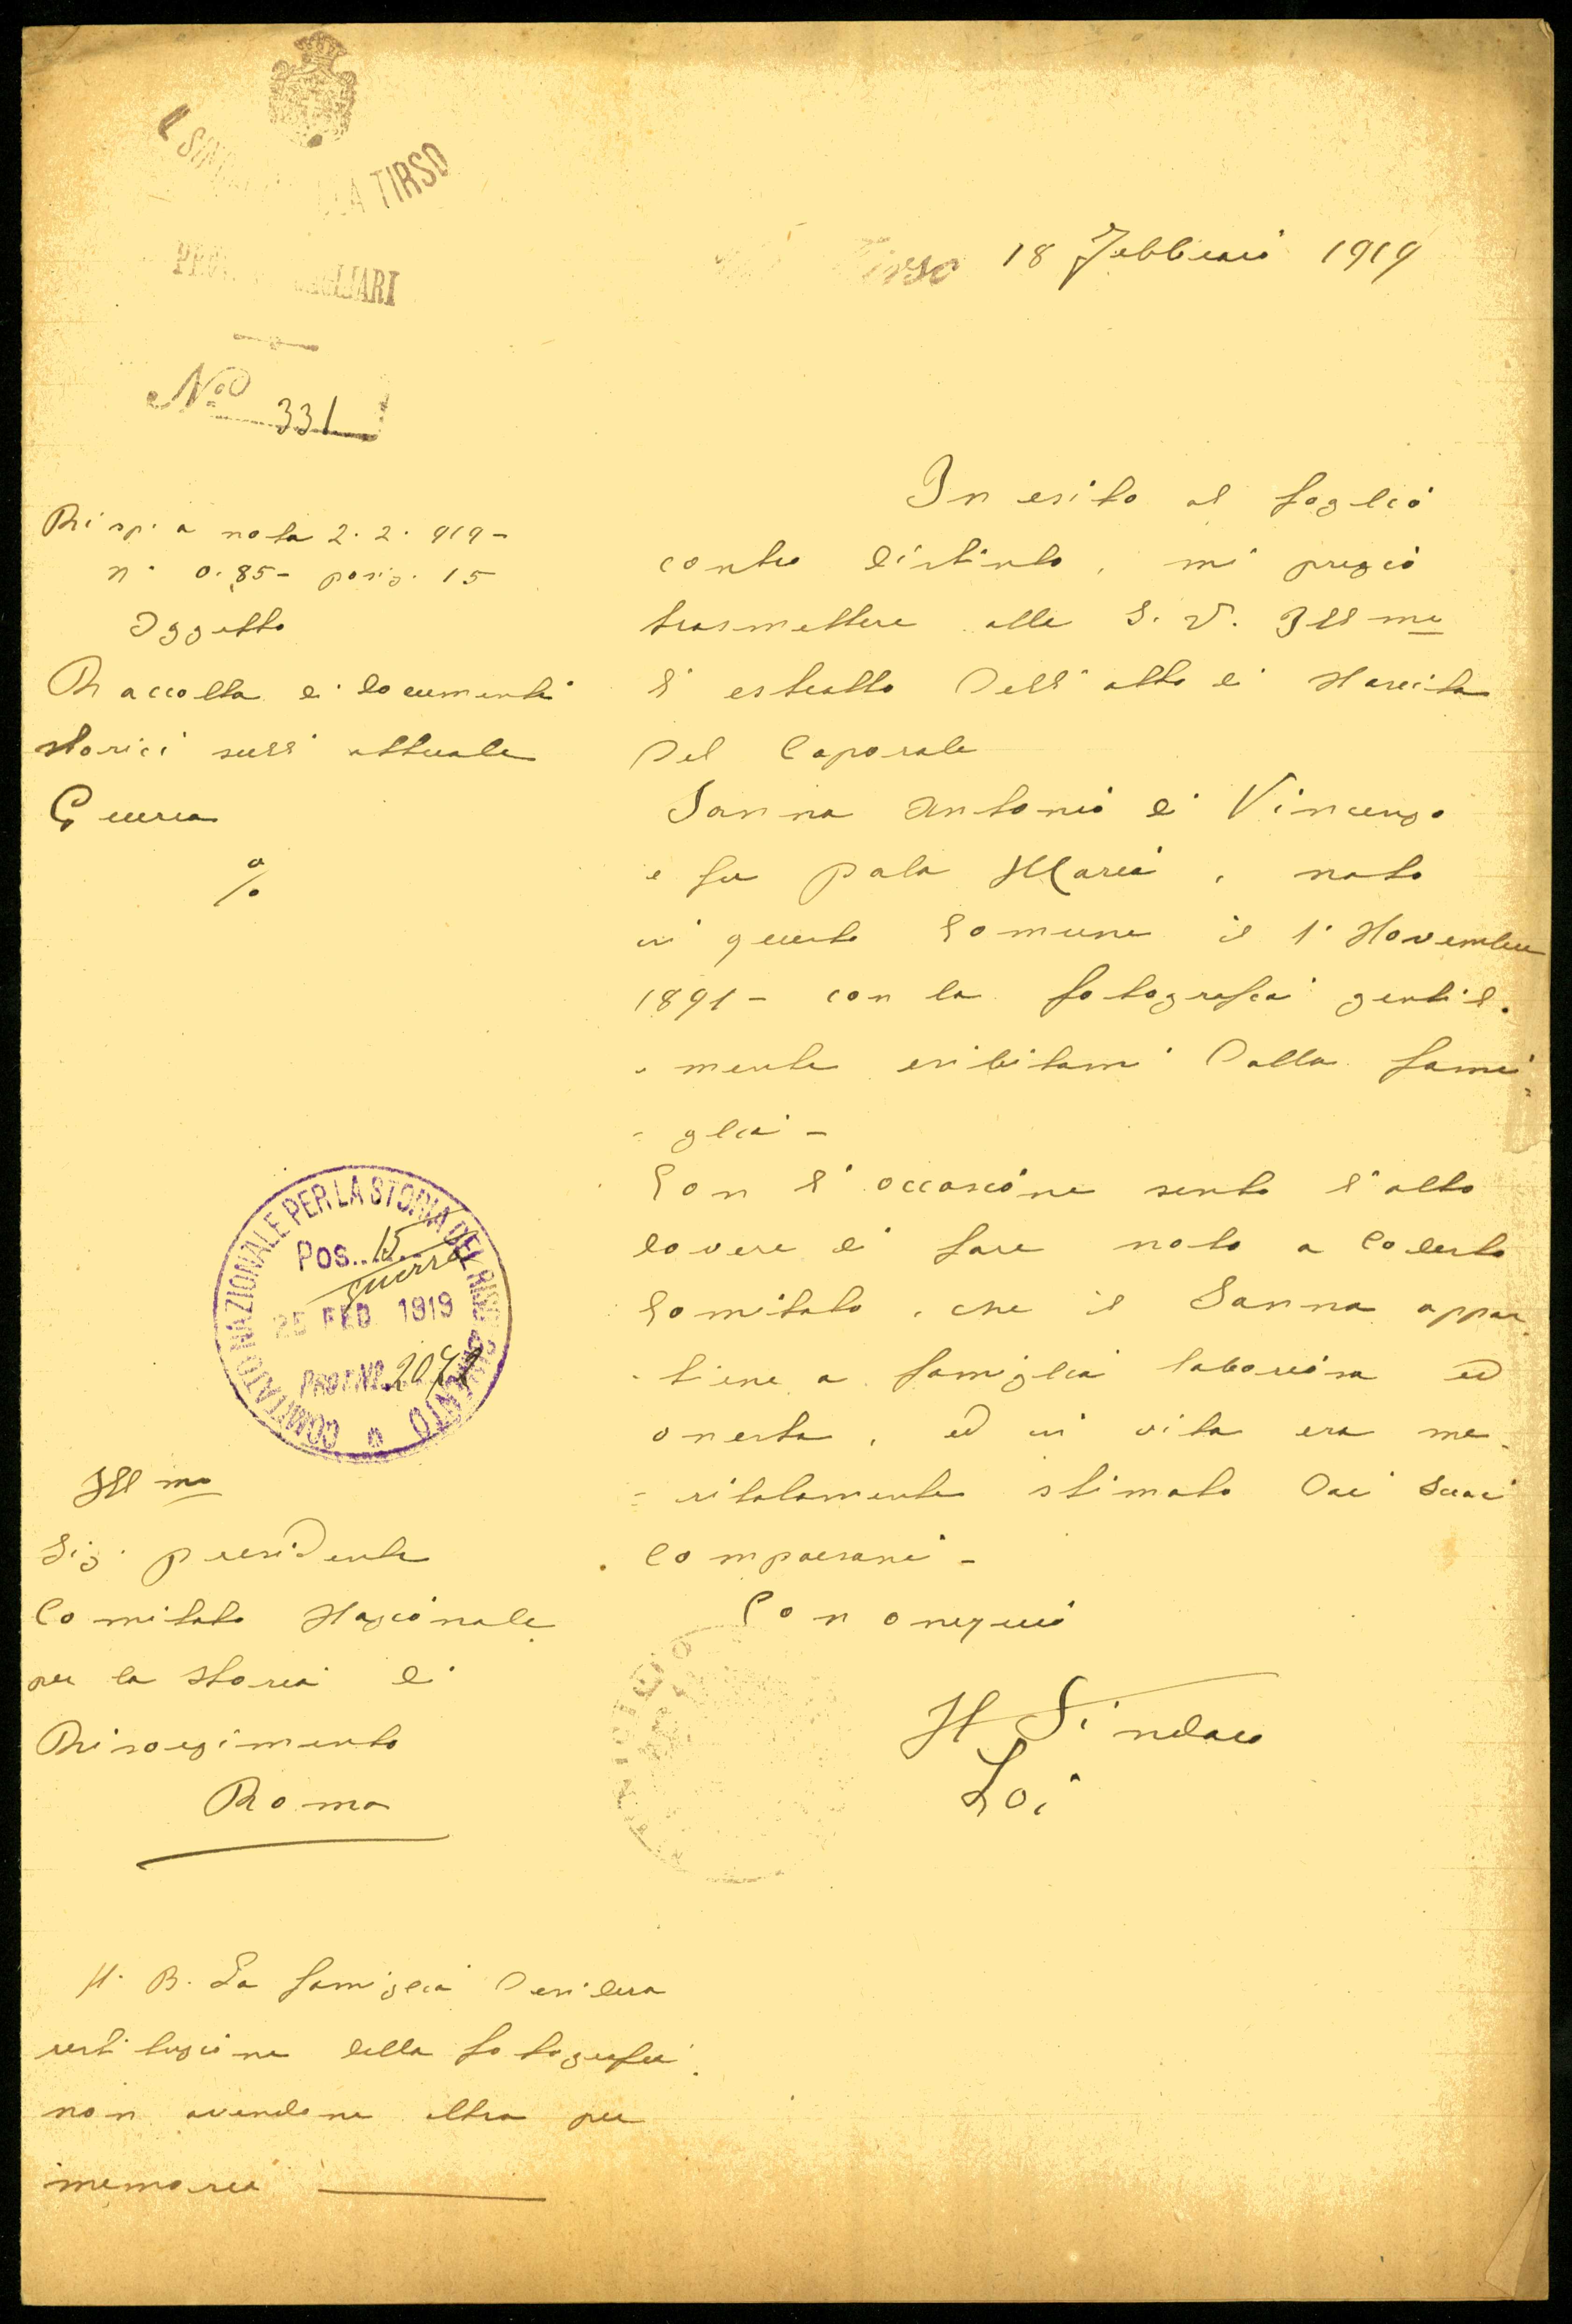 IL SINDACO DI ULA TIRSO
PROV. DI CAGLIARI
Tirso 18 Febbraio 1919
No 331
Risp. a nota 2. 2. 919 -
n. 0.85 - posiz. 15
Oggetto
Raccolta di documenti
storici sull' attuale
Guerra
%
In esito al foglio
contro distinto, mi pregio
trasmettere alla S. V. Ill ma
l' estratto dell' atto di Nascita
del Caporale
Sanna Antonio di Vincenzo
e fu Pala Maria, nato
in questo Comune il 1° Novembre
1891 - con la fotografia gentil-
- mente esibitami dalla fami
= glia -
Con l' occasione sento l' alto
dovere di fare noto a Codesto
Comitato, che il Sanna appar
- tiene a famiglia laboriosa ed
onesta, ed in vita era me-
= ritatamente stimato dai suoi
Compaesani -
Con ossequio
Il Sindaco
Loi
COMITATO NAZIONALE PER LA STORIA DEL RISORGIMENTO
Pos. 15
guerra
25 FEB 1919
PROT. No.
Ill mo
Sig. Presidente
Comitato Nazionale
per la storia di
Risorgimento
Roma
N. B. La famiglia desidera
restituzione della fotografia
non avendone altra per
memoria